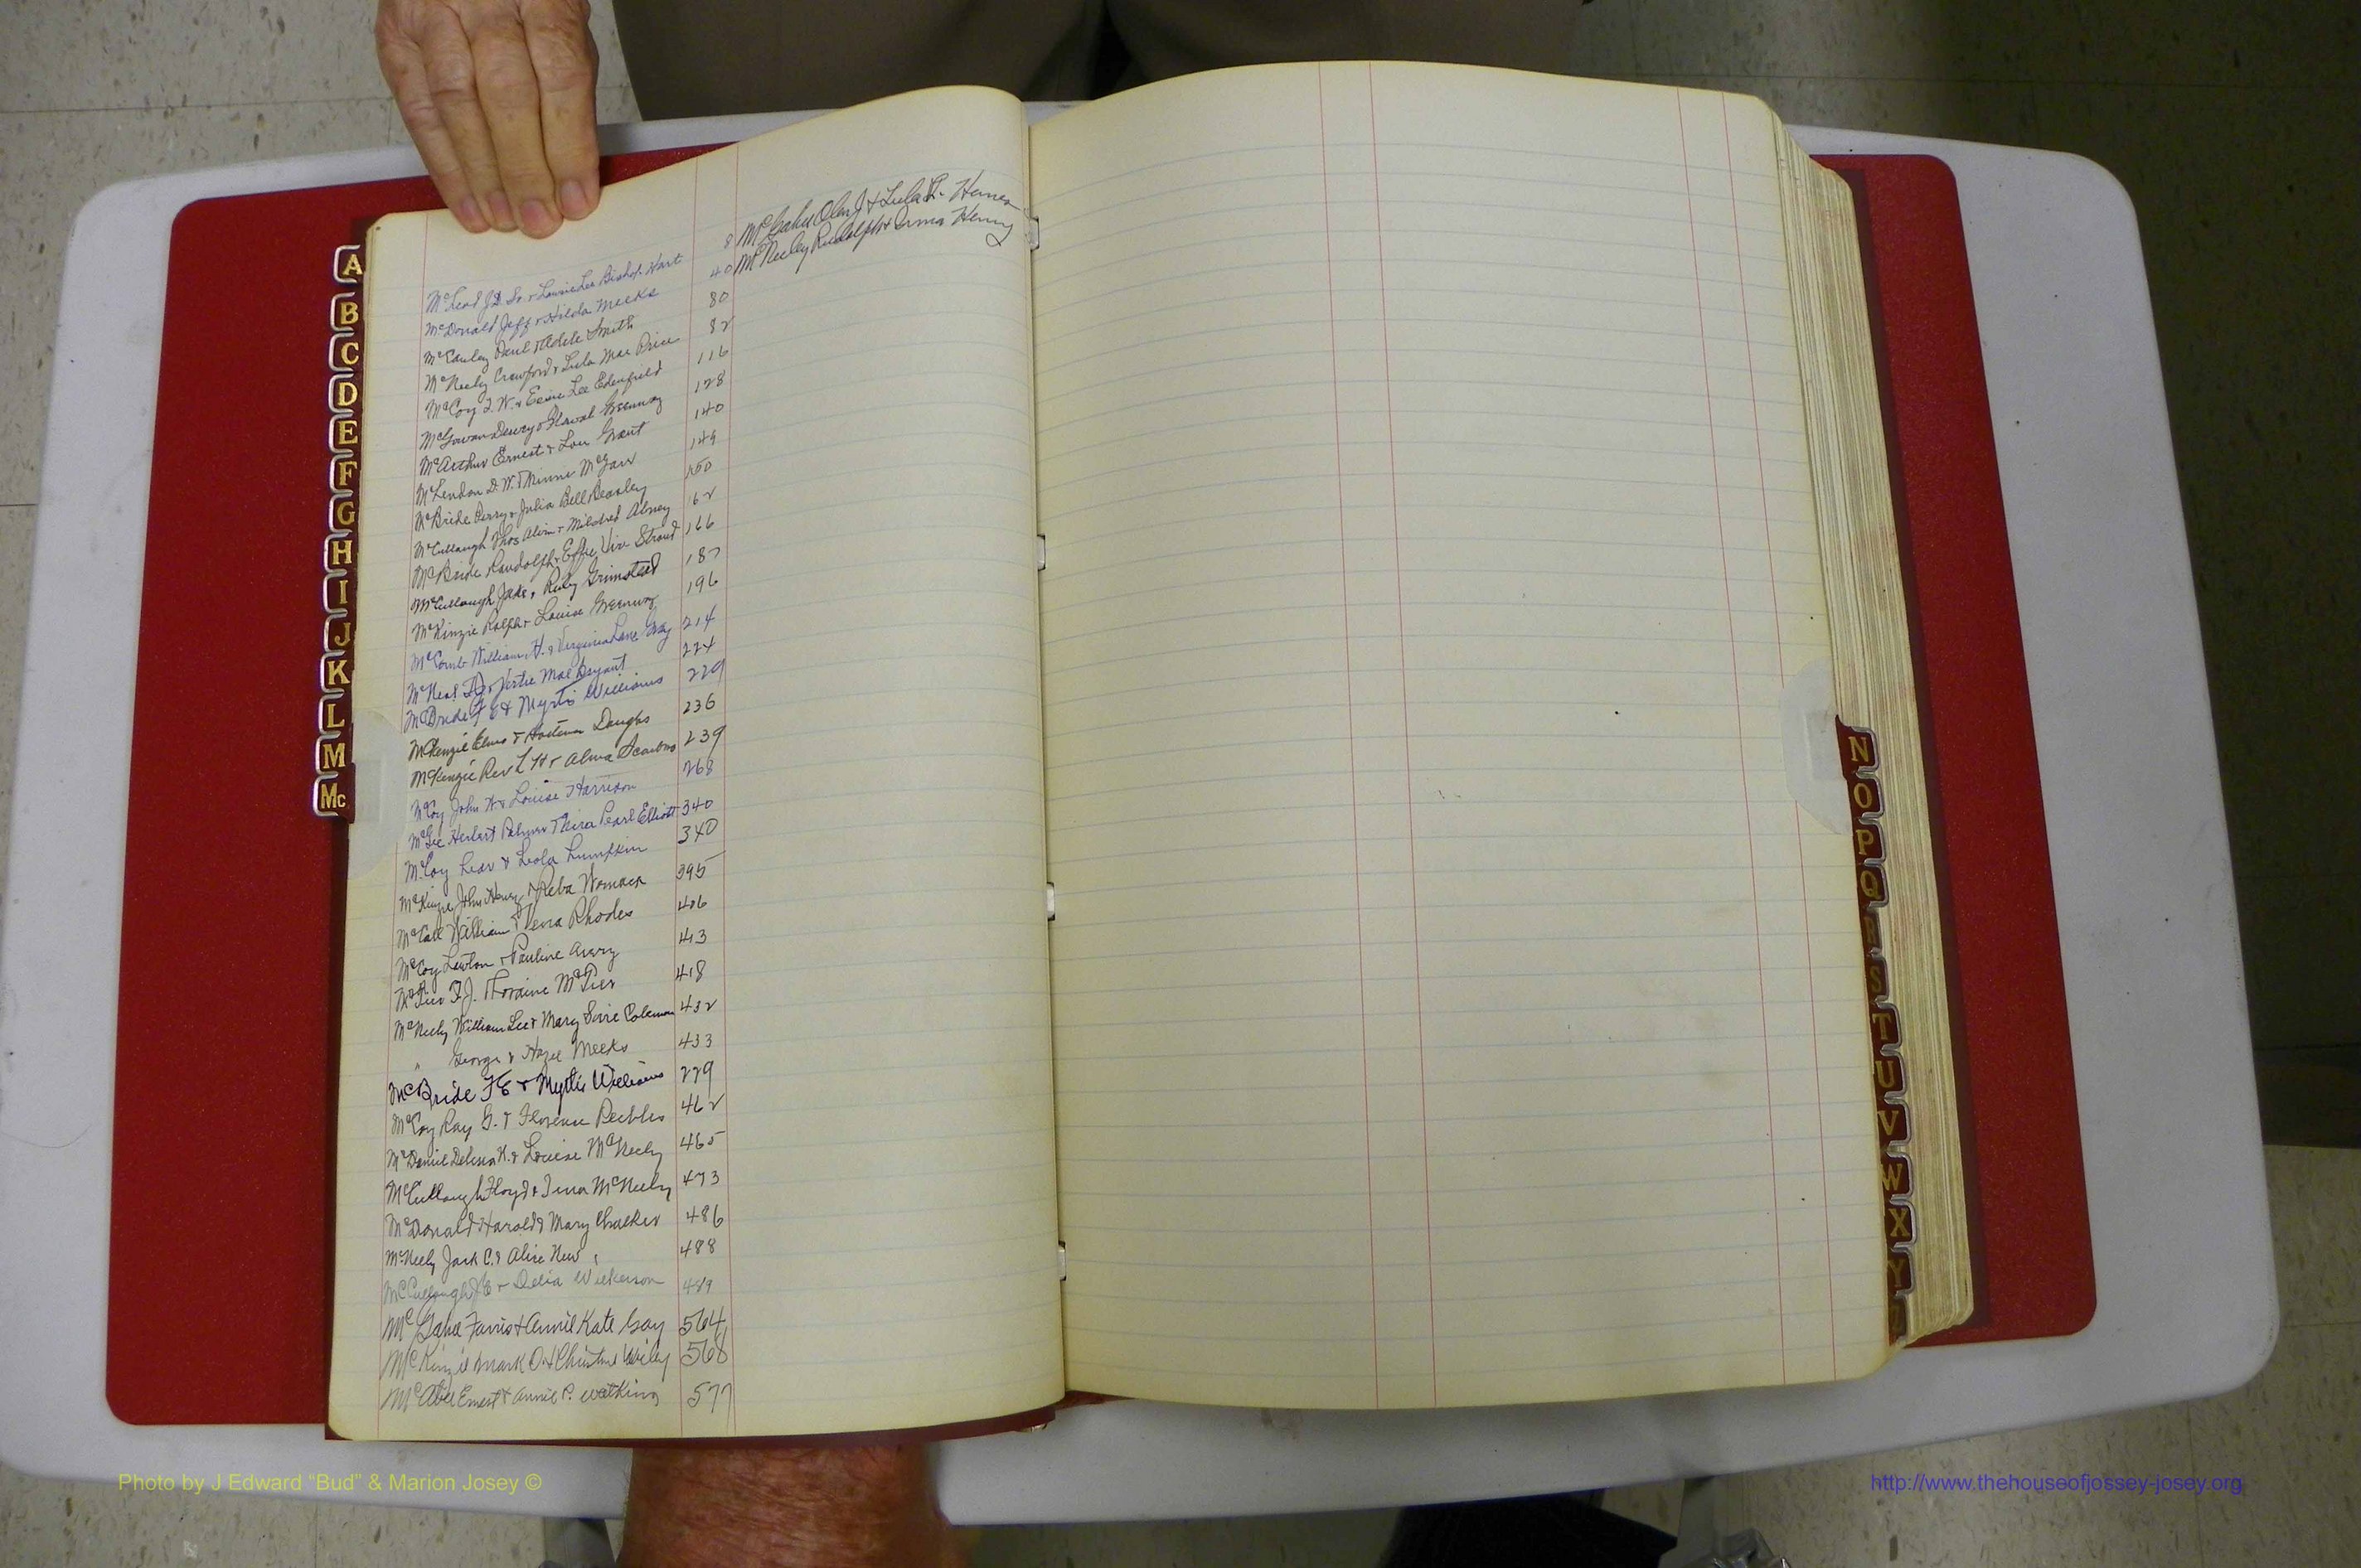 A
B
C
D
E
F
G
H
I
J
K
L
M
Mc
McLeod J.D. Sr. & Lawrie Lee Bishop Hart 8
McDonald Jeff & Hilda Meeks 40
McCauley Paul & Adele Smith 80
McNeely Crawford & Lula Mae Price 82
McCoy & Essie Lee Edenfield 116
McGowan Dewey & Greenway 128
McArthur Ernest & Lou Grant 140
McLendon D. W. & Minnie McGarr 149
McBride Perry & Julia Bell Beasley 150
McCullough Thos Alvin & Mildred Abney 162
McBride Randolph & Effie Vive Stroud 166
McCullough Jake & Ruby Grimstead 187
McKinzie Ralph & Louise Greenway 196
McComb William H. & Virginia Lane Gay 214
McNeal & Vertie Mae Bryant 224
McBride F E & Myrtis Williams 229
McKenzie Elmo & Douglas 236
McKenzie Rev L H & Alma Scarboro 239
McCoy John W & Louise Harrison 268
McGee Herbert Palmer & Pearl Elliott 340
McCoy & Leola Lumpkin 340
McKinzie John Henry & Reba Womack 395
McCall William & Vera Rhodes 406
McCoy Lawton & Pauline Avery 413
F.J. & Loraine McTier 418
McNeely William Lee & Mary Coleman 432
" George & Hazel Meeks 433
McBride F E & Myrtis Williams 229
McCoy Ray G. & Florence Peebles 462
McDaniel K. & Louise McNeely 465
McCullough Floyd & McNeely 473
McDonald Harold & Mary Chalker 486
McNeely Jack C. & Alice New 488
McCullough J E & Delia Wilkerson 489
McGahee Farris & Annie Kate Gay 564
McKinzie Mark O & Christine Wiley 568
McAbee Ernest & Annie P. Watkins 577
McGahee Olin J & Lula R. Hanes
McNeeley Rudolph & Irma Henry
N
O
P
Q
R
S
T
U
V
W
X
Y
Photo by J Edward “Bud” & Marion Josey ©
http://www.thehouseofjossey-josey.org